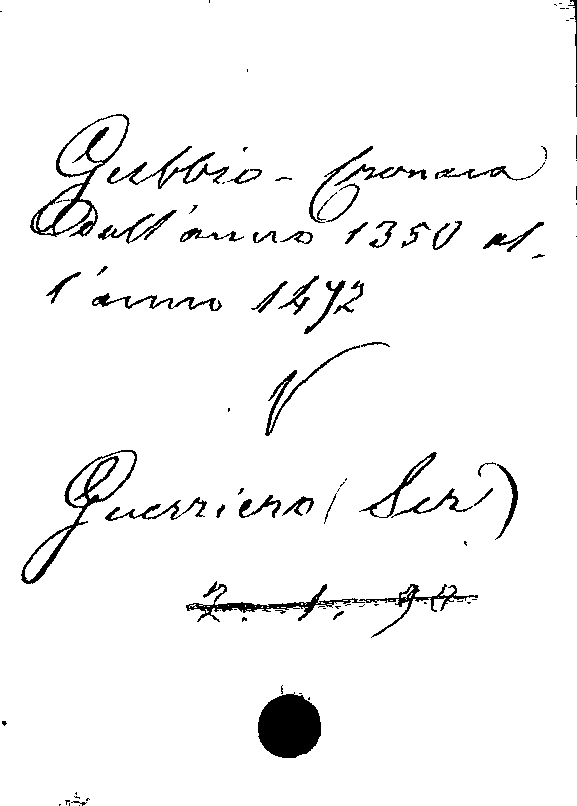 Gubbio - Cronaca
dall'anno 1350 al-
l'anno 1472
V
Guerriero (Ser)
2. 1.